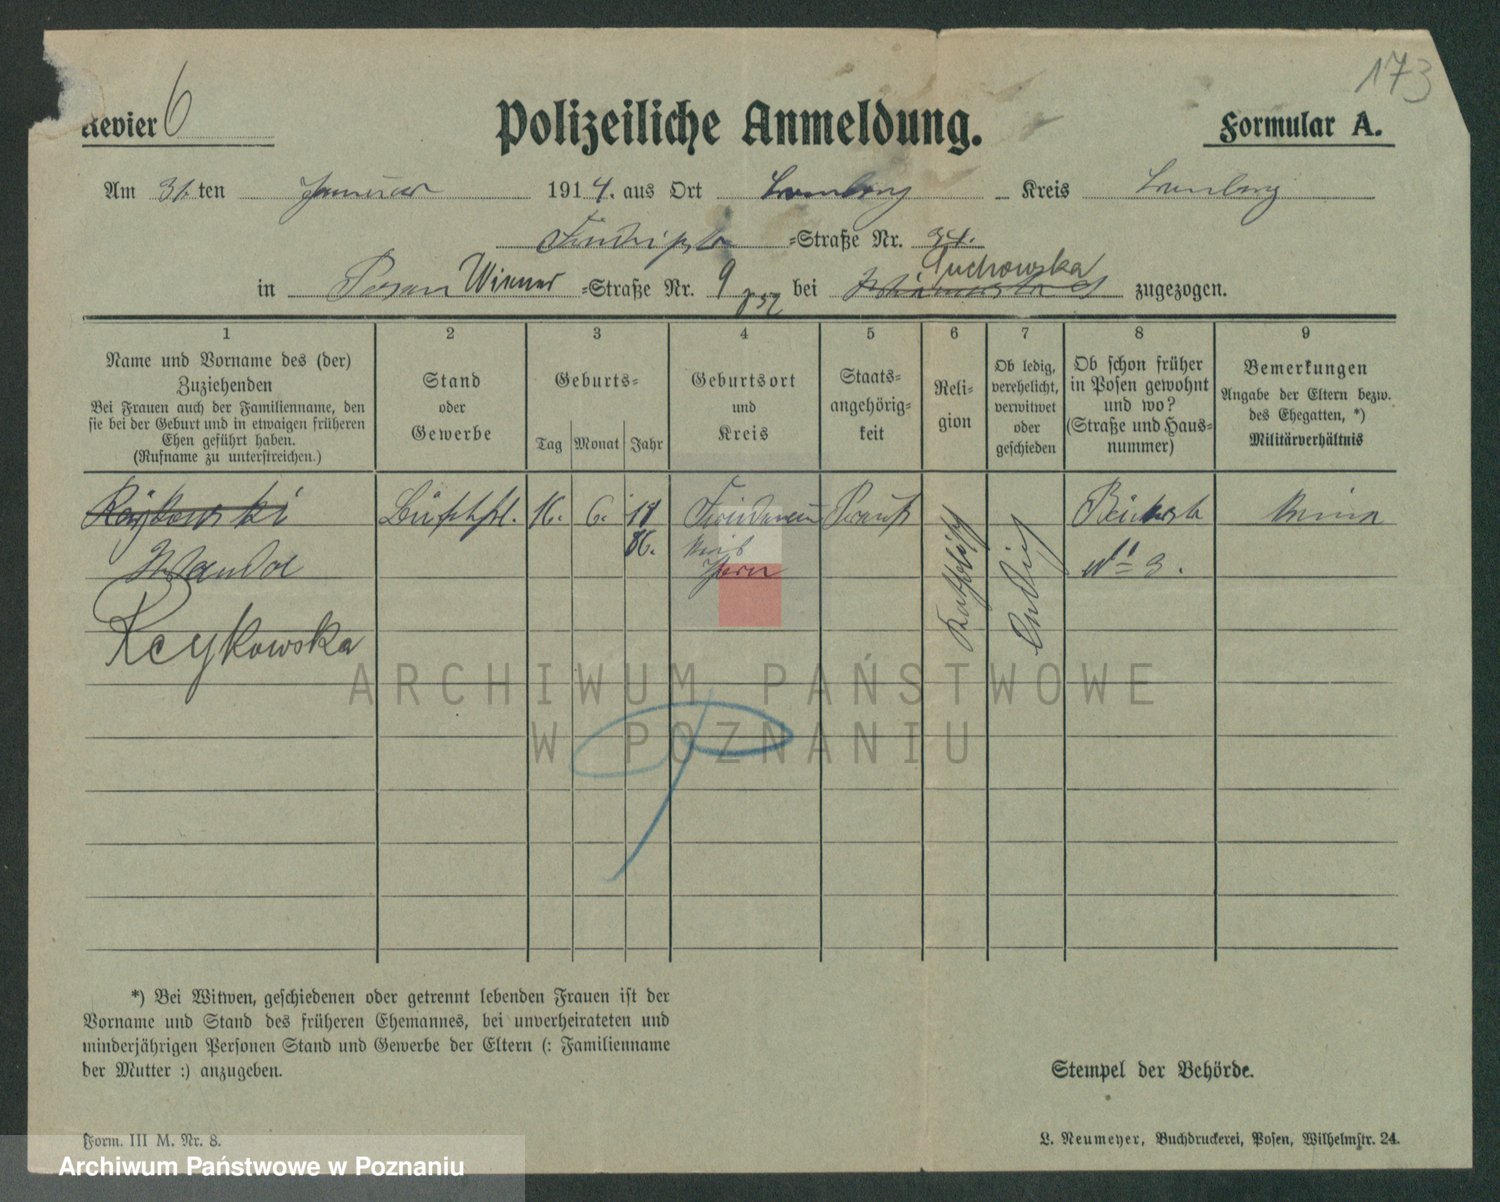 173
Revier 6
Polizeiliche Anmeldung.
Formular A.
Am 31. ten Januar 1914. aus Ort Lemberg Kreis Lemberg
-Straße Nr. 34.
Suchowska
in Posen Wiener -Straße Nr. 9 bei zugezogen.
1 2 3 4 5 6 7 8 9
Name und Vorname des (der)
Zuziehenden
Bei Frauen auch der Familienname, den
sie bei der Geburt und in etwaigen früheren
Ehen geführt haben.
(Rufname zu unterstreichen.)
Stand
oder
Gewerbe
Geburts-
Tag Monat Jahr
Geburtsort
und
Kreis
Staats-
angehörig-
keit
Reli-
gion
Ob ledig,
verehelicht,
verwitwet
oder
geschieden
Ob schon früher
in Posen gewohnt
und wo?
(Straße und Haus-
nummer)
Bemerkungen
Angabe der Eltern bezw.
des Ehegatten, *)
Militärverhältnis
16. 6. 18
86.
Preuß
Katholisch
ledig
Wanda
No 3.
Rcykowska
ARCHIWUM PAŃSTWOWE
W POZNANIU
*) Bei Witwen, geschiedenen oder getrennt lebenden Frauen ist der
Vorname und Stand des früheren Ehemannes, bei unverheirateten und
minderjährigen Personen Stand und Gewerbe der Eltern (: Familienname
der Mutter :) anzugeben.
Stempel der Behörde.
Form. III M. Nr. 8.
L. Neumeyer, Buchdruckerei, Posen, Wilhelmstr. 24.
Archiwum Państwowe w Poznaniu